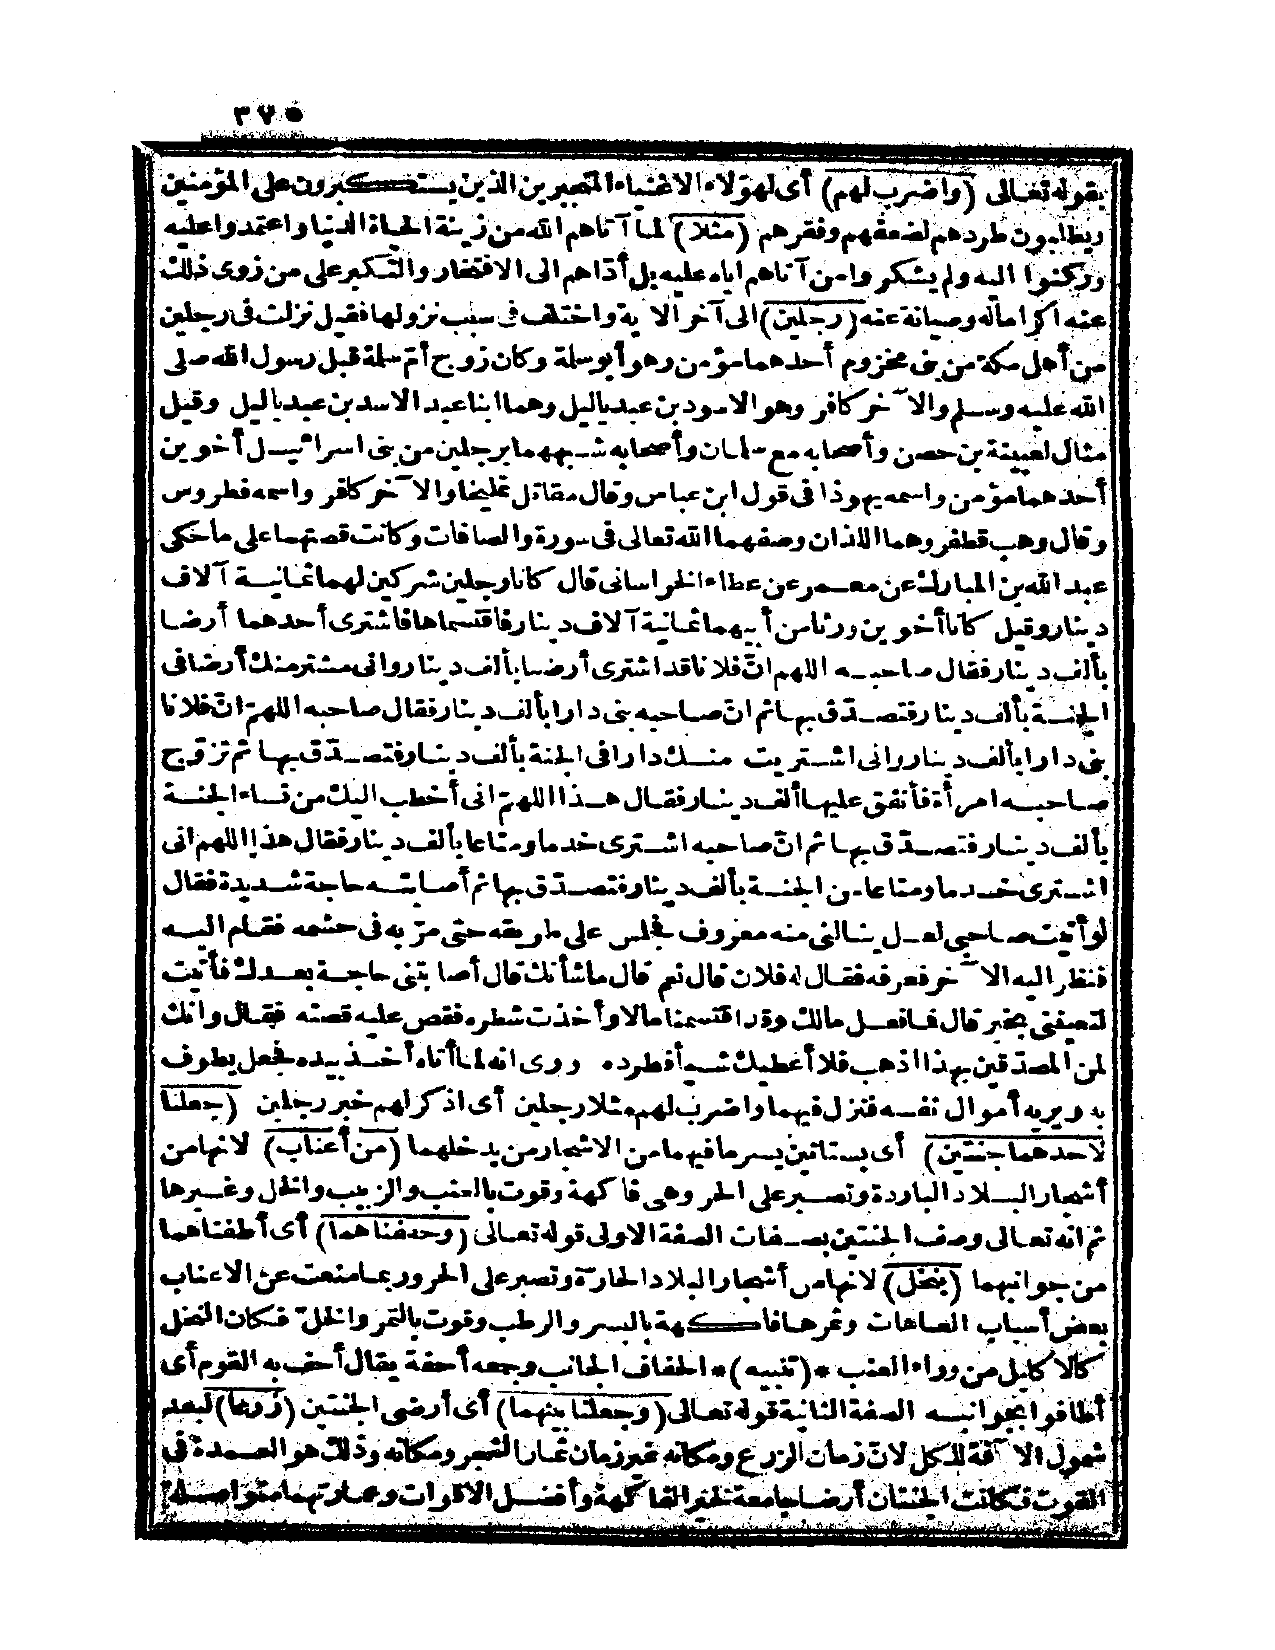 ٣٧٥
بقوله تعالى (واضرب لهم) أى لهؤلاء الاغنياء المتجبرين الذين يستكبرون على المؤمنين
ويطلبون طردهم لضعفهم وفقرهم (مثلا) لما آتاهم الله من زينة الحياة الدنيا واعتمدوا عليه
وركنوا اليه ولم يشكروا من آتاهم اياه عليه بل أدّاهم الى الافتخار والتكبر على من زوى ذلك
عنه اكراما له وصيانة عنه (رجلين) الى آخر الآية واختلف فى سبب نزولها فقيل نزلت فى رجلين
من أهل مكة من بنى مخزوم أحدهما مؤمن وهو أبو سلة وكان زوج أمّ سلة قبل رسول الله صلى
الله عليه وسلم والآخر كافر وهو الاسود بن عبد ياليل وهما ابنا عبد الاسد بن عبد ياليل وقيل
مثال لعيينة بن حصن وأصحابه مع سلمان وأصحابه شبههما برجلين من بنى اسرائيل أخوين
أحدهما مؤمن واسمه يهوذا فى قول ابن عباس وقال مقاتل تمليخا والآخر كافر واسمه فطروس
وقال وهب قطفر وهما اللذان وصفهما الله تعالى فى سورة والصافات وكانت قصتهما على ما حكى
عبد الله بن المبارك عن معمر عن عطاء الخراسانى قال كانا رجلين شركين لهما ثمانية آلاف
دينار وقيل كانا أخوين ورثا من أبيهما ثمانية آلاف دينار فاقتسماها فاشترى أحدهما أرضا
بألف دينار فقال صاحبه اللهم انّ فلانا قد اشترى أرضا بألف دينار وانى مشتر منك أرضا فى
الجنة بألف دينار فتصدّق بها ثم انّ صاحبه بنى دارا بألف دينار فقال صاحبه اللهمّ انّ فلانا
بنى دارا بألف دينار وانى اشتريت منك دارا فى الجنة بألف دينار فتصدّق بها ثم تزوّج
صاحبه امرأة فأنفق عليها ألف دينار فقال هذا اللهمّ انى أخطب اليك من نساء الجنة
بألف دينار فتصدّق بها ثم انّ صاحبه اشترى خدما ومتاعا بألف دينار فقال هذا اللهم انى
اشترى خدما ومتاعا من الجنة بألف دينار فتصدّق بها ثم أصابته حاجة شديدة فقال
لو أتيت صاحبى لعل ينالنى منه معروف فجلس على طريقه حتى مرّ به فى حشمه فقام اليه
فنظر اليه الآخر فعرفه فقال له فلان قال نعم قال ما شأنك قال أصابتنى حاجة بعدك فأتيت
لتعيننى بخير قال فما فعل مالك وقد اقتسمنا مالا وأخذت شطره فقص عليه قصته فقال وانك
لمن المصدّقين بهذا اذهب فلا أعطيك شيأ فطرده وروى انه لما أتاه أخذ بيده فجعل يطوف
به ويريه أموال نفسه فنزل فيهما واضرب لهم مثلا رجلين أى اذكر لهم خبر رجلين (جعلنا
لاحدهما جنتين) أى بستانين يسر ما فيهما من الاشجار من يدخلهما (من أعناب) لانها من
أشجار البلاد الباردة وتصبر على الحر وهى فاكهة وقوت بالعنب والزبيب والخل وغيرها
ثم انه تعالى وصف الجنتين بصفات الصفة الاولى قوله تعالى (وحففناهما) أى أطفناهما
من جوانبهما (بنخل) لانها من أشجار البلاد الحارّة وتصبر على الحر وربما منعت عن الاعناب
بعض أسباب العاهات وثمرها فاكهة بالبسر والرطب وقوت بالتمر والخلّ فكان النخل
كالاكليل من وراء العنب *(تنبيه)* الحفاف الجانب وجمعه أحفة يقال أحف به القوم أى
أطافوا بجوانبه الصفة الثانية قوله تعالى (وجعلنا بينهما) أى أرضى الجنتين (زرعا) لبعد
شمول الآفة للكل لانّ زمان الزرع ومكانه غير زمان ثمار الشجر ومكانه وذلك هو العمدة فى
القوت فكانت الجنتان أرضا جامعة لخير الفاكهة وأفضل الاقوات وعمارتهما متواصلة